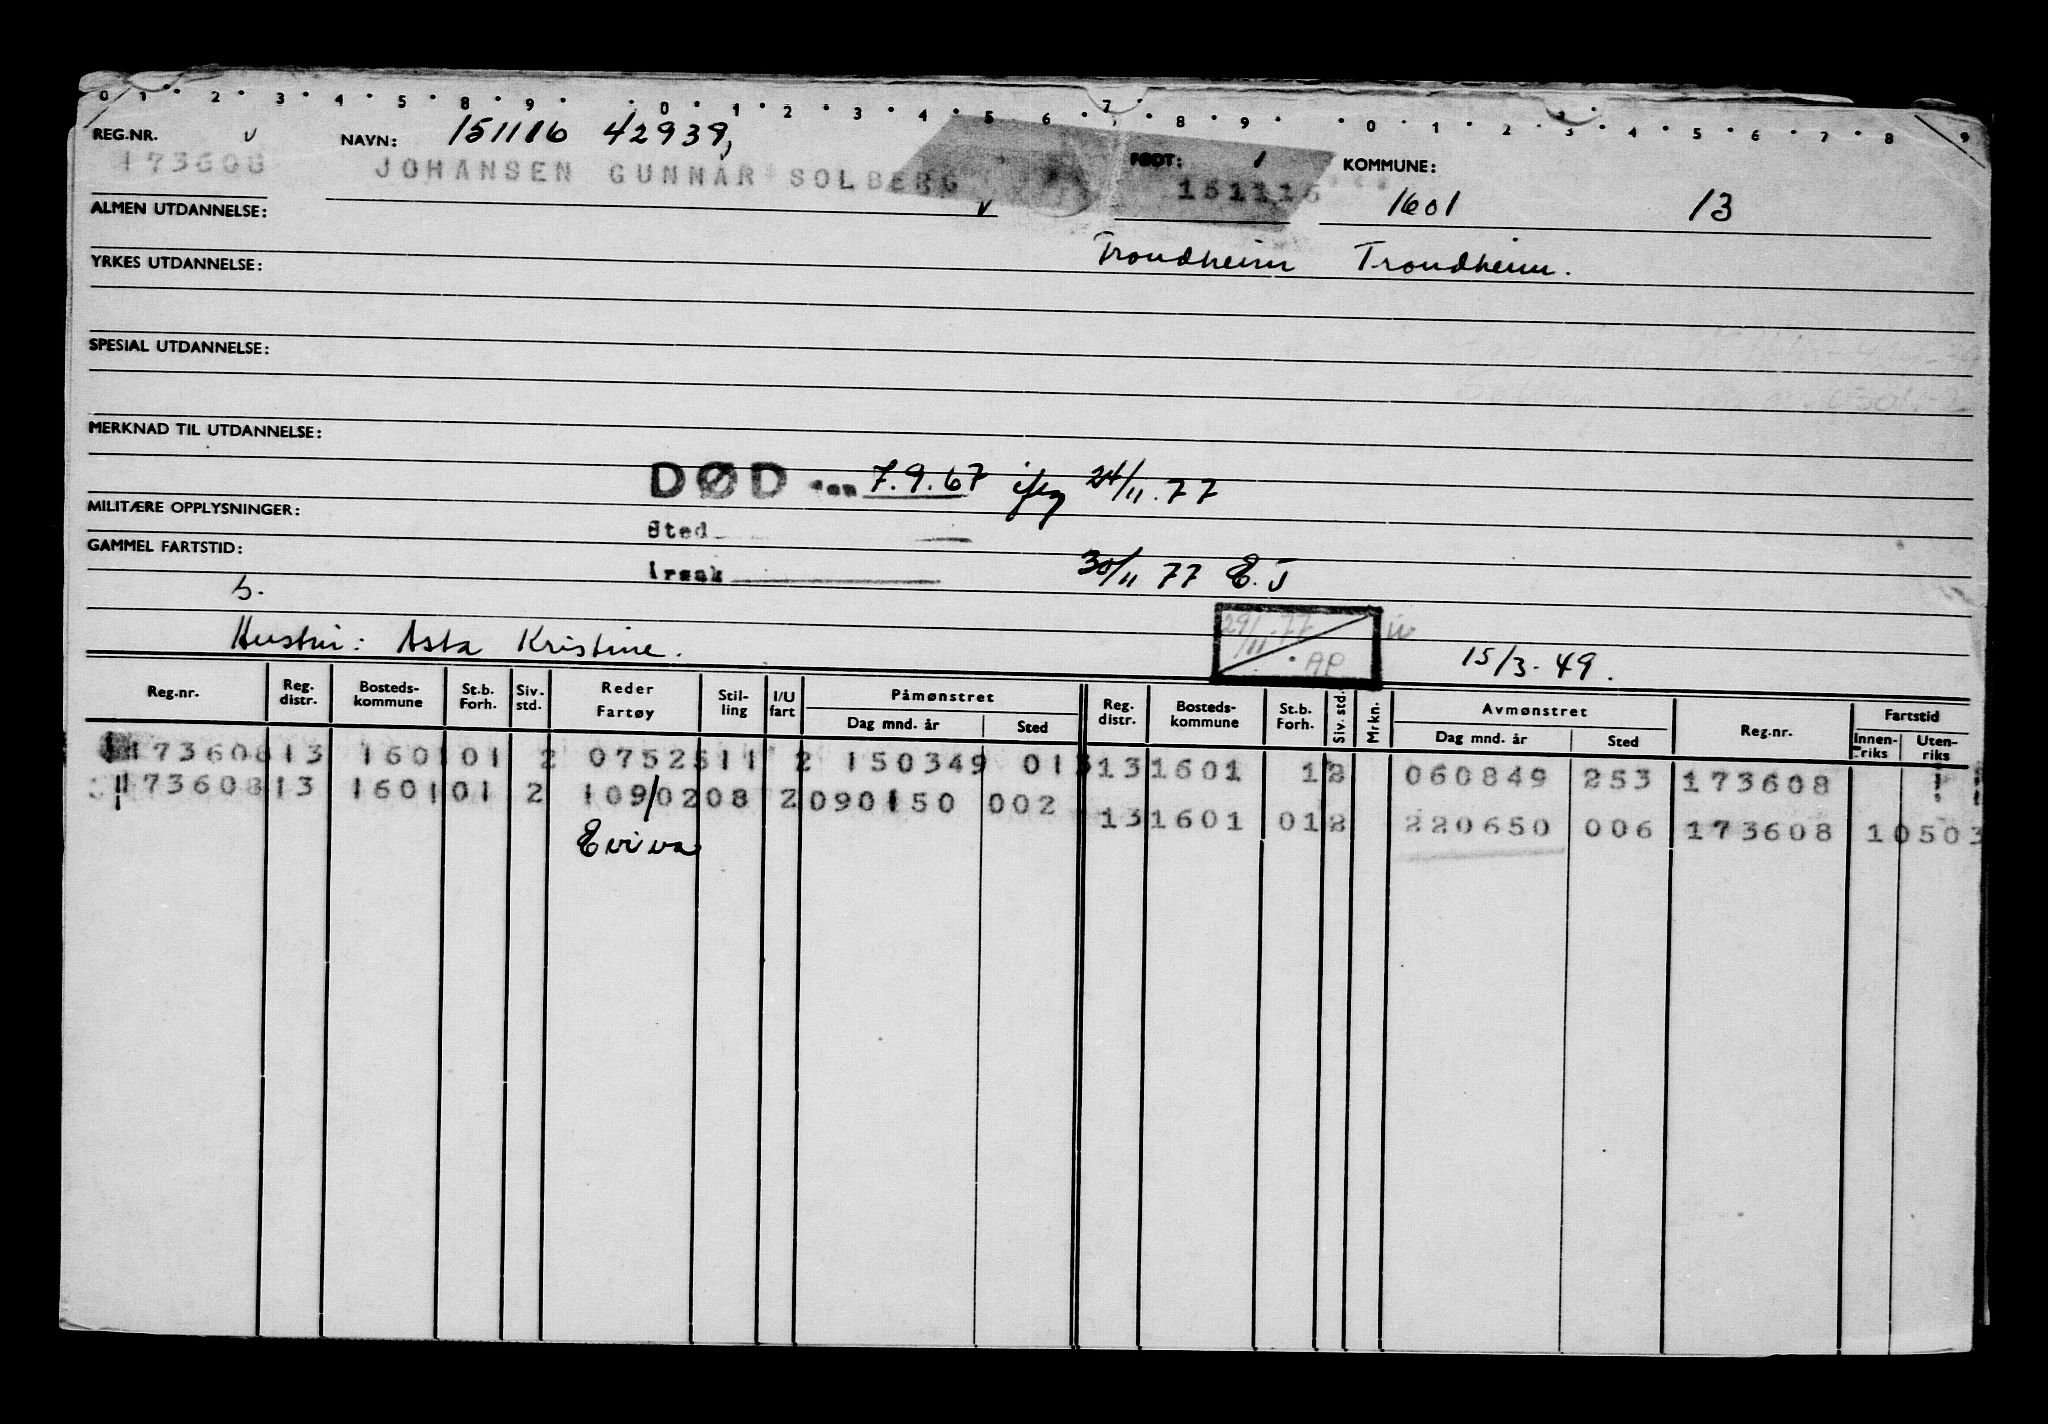 0 1 2 3 4 5 8 9 0 1 2 3 4 5 6 7 8 9 0 1 2 3 4 5 6 7 8 9
REG.NR. NAVN: 151116 42939, FØDT: 1 KOMMUNE:
173608 JOHANSEN GUNNAR SOLBERG 151116 1601 13
ALMEN UTDANNELSE:
Trondheim Trondheim.
YRKES UTDANNELSE:
SPESIAL UTDANNELSE:
MERKNAD TIL UTDANNELSE:
DØD den 7.9.67 ifg 24/11.77
MILITÆRE OPPLYSNINGER: Sted
GAMMEL FARTSTID: Årsak 30/11 77 E.J
29/11.77 AP
Hustru: Asta Kristine. 15/3-49.
Reg.nr. Reg. distr. Bosteds-kommune St.b. Forh. Siv. std. Reder Fartøy Stil-ling I/U fart Påmønstret Dag mnd. år Sted Reg. distr. Bosteds-kommune St.b. Forh. Siv. std. Mrkn. Avmønstret Dag mnd. år Sted Reg.nr. Fartstid Innen-riks Uten-riks
173608 13 1601 01 2 0752511 2 150349 013 13 1601 1 2 060849 253 173608
173608 13 1601 01 2 109/0208 2 090150 002 13 1601 01 2 220650 006 173608 10503
Eviva